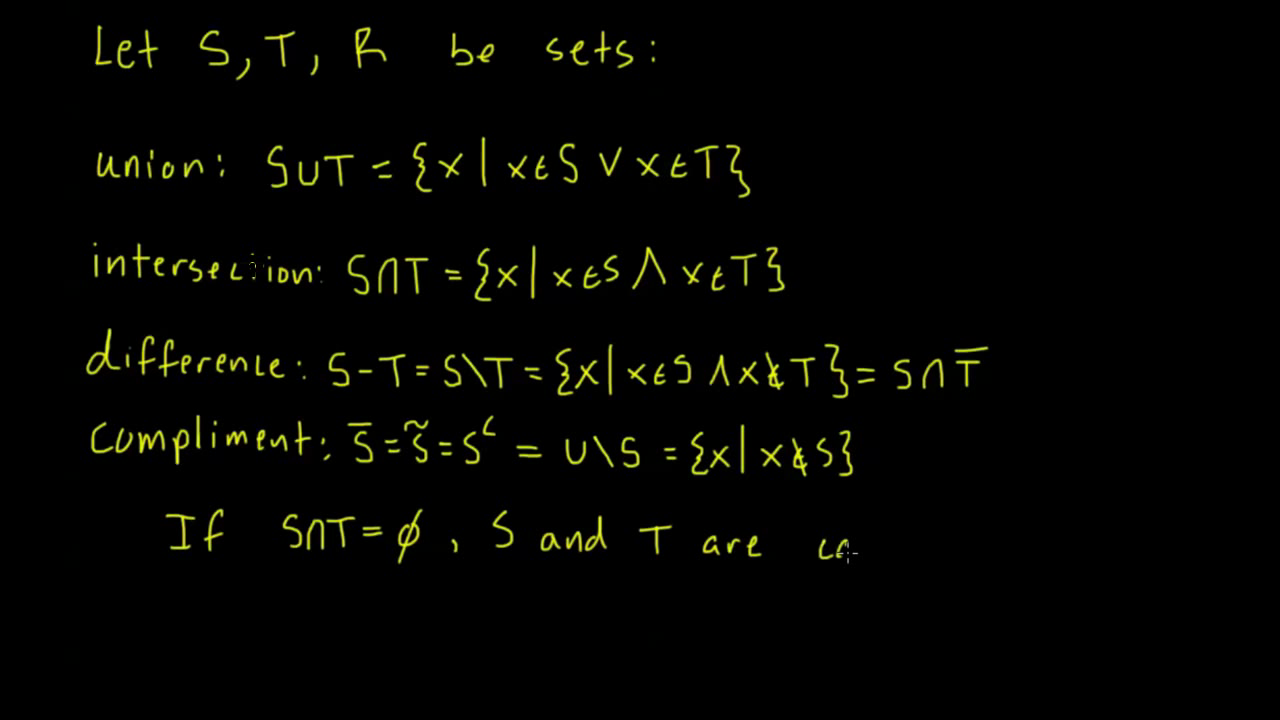 Let S, T, R be sets:
union: S∪T = {x | x∈S ∨ x∈T}
intersection: S∩T = {x | x∈S ∧ x∈T}
difference: S-T = S\T = {x | x∈S ∧ x∉T} = S∩T̅
compliment: S̅ = S̃ = Sᶜ = U\S = {x | x∉S}
If S∩T = ∅, S and T are ca